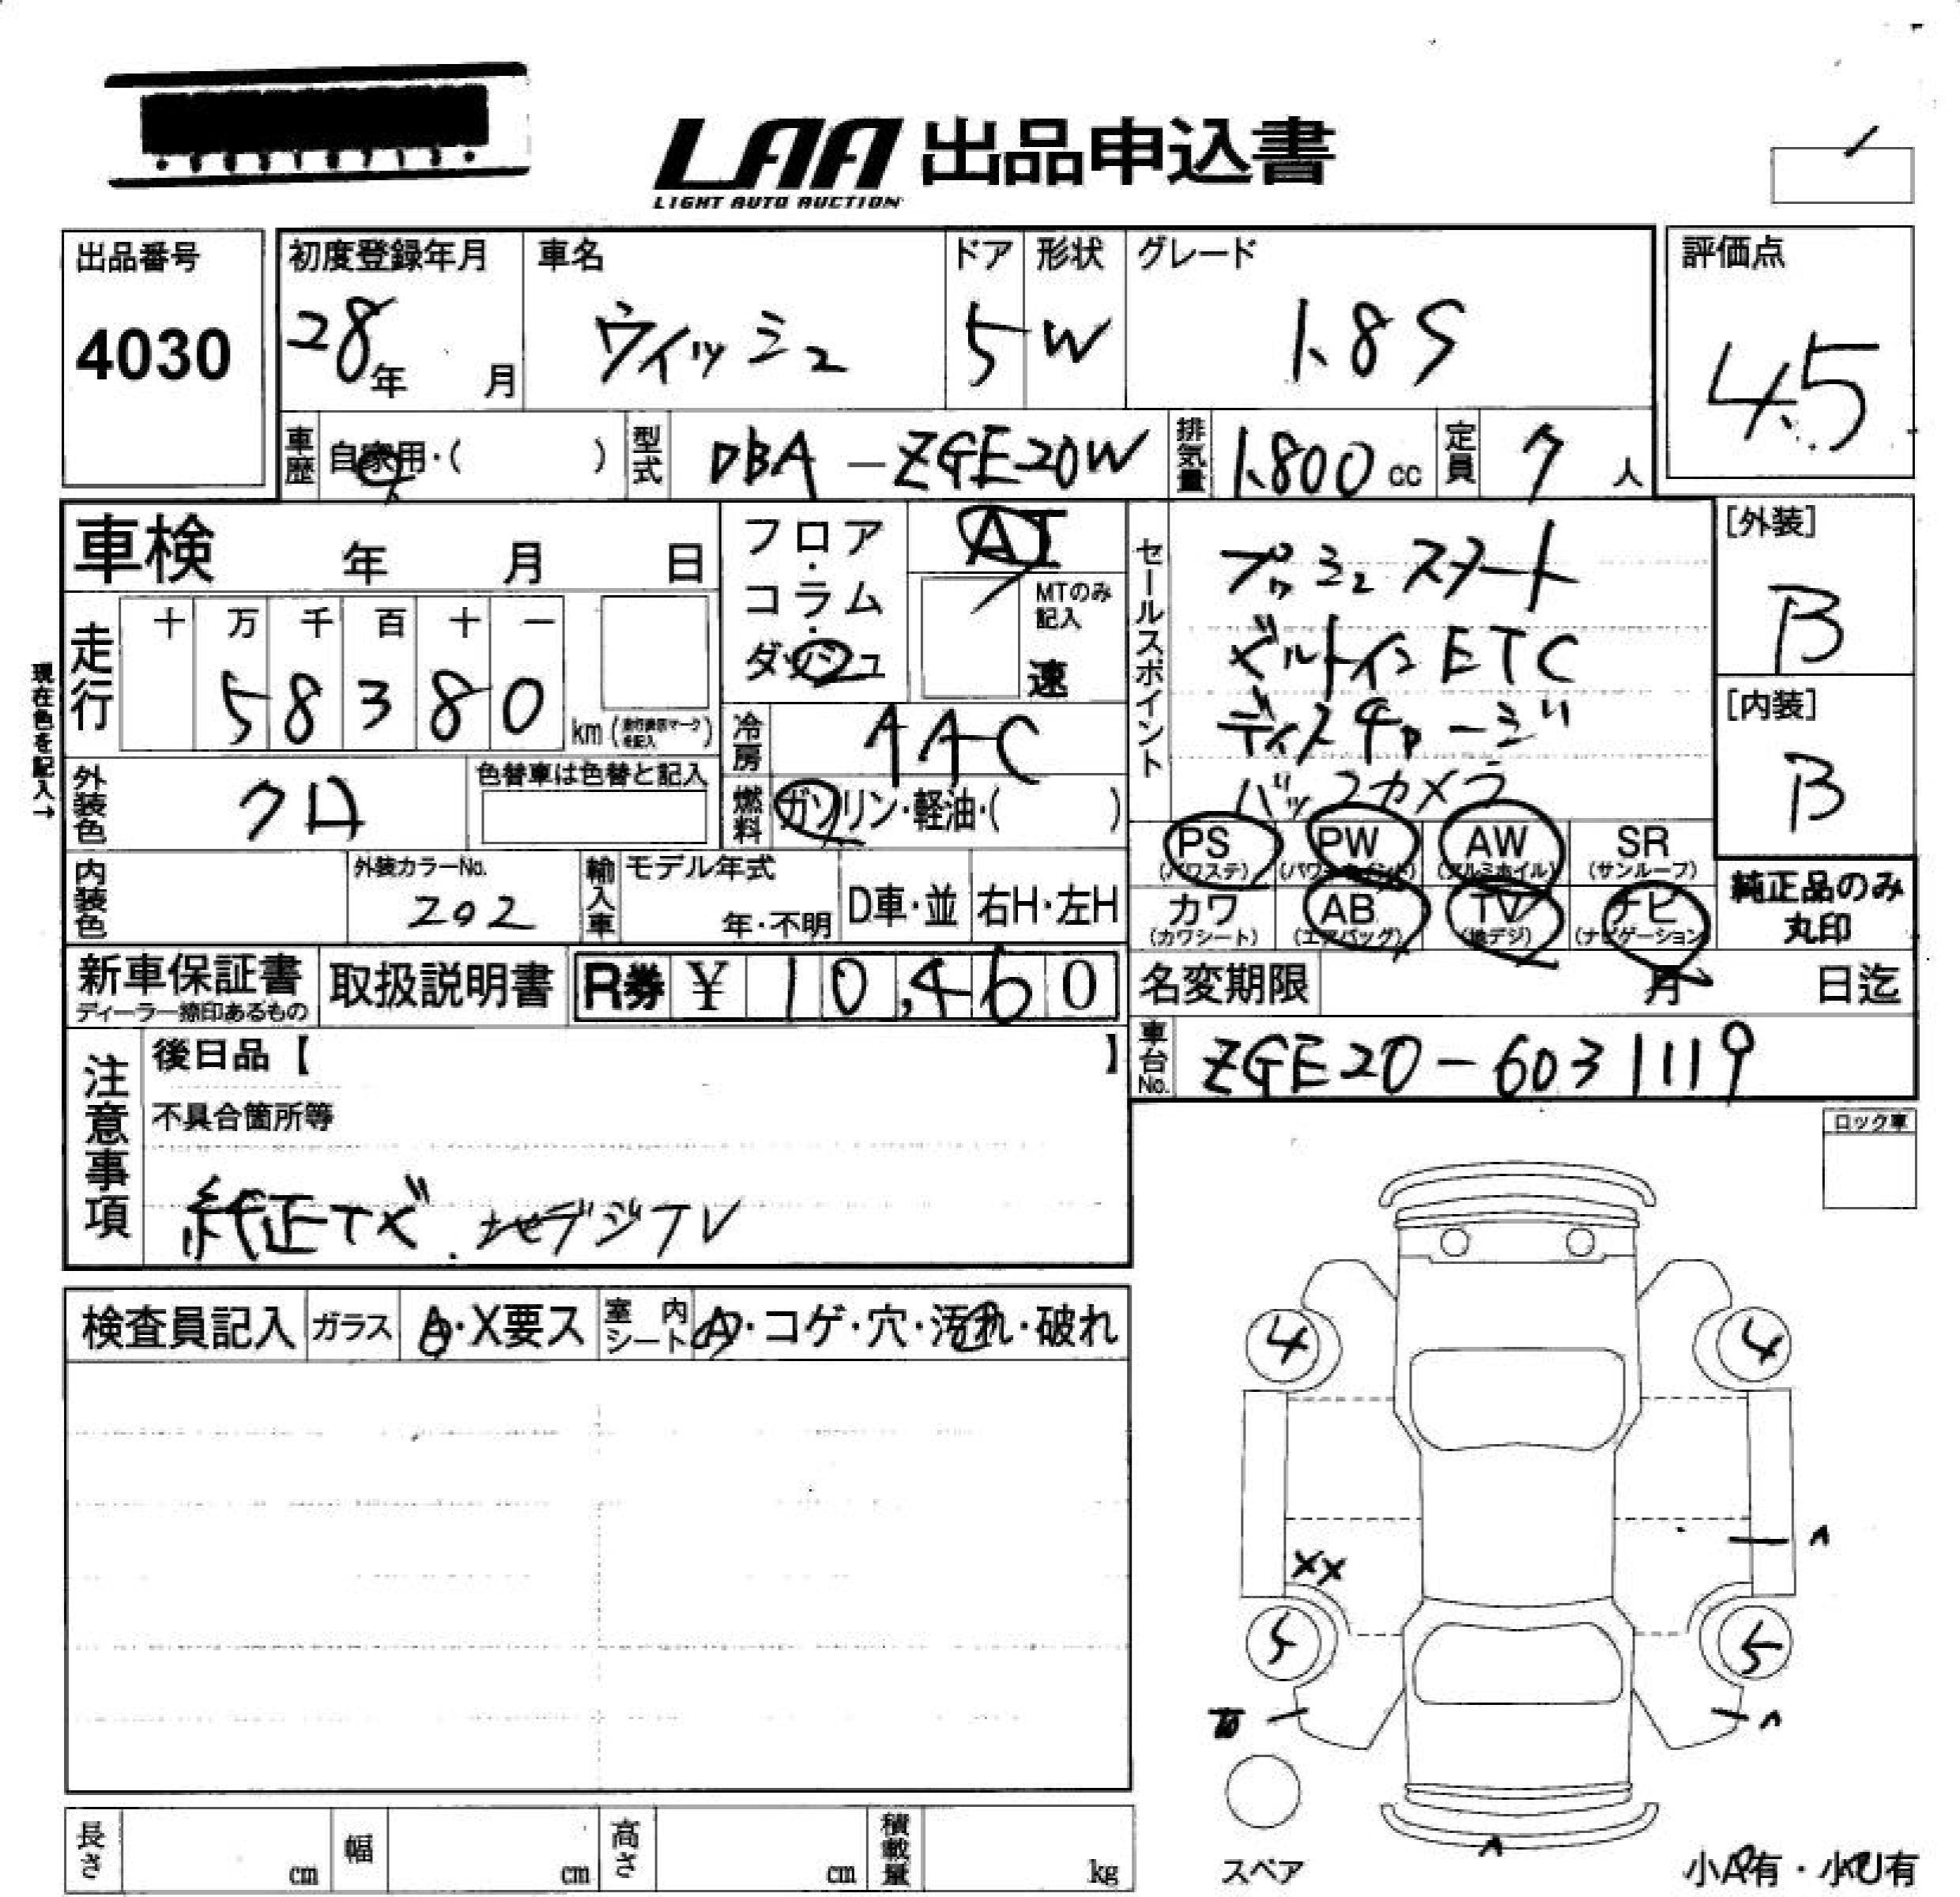 LAA 出品申込書
LIGHT AUTO AUCTION
出品番号
4030
初度登録年月
28年 月
車名
ウィッシュ
ドア
5
形状
W
グレード
1.8S
評価点
4.5
車歴
自家用・( )
型式
DBA-ZGE20W
排気量
1.800cc
定員
7人
車検 年 月 日
フロア・コラム・ダッシュ
AT
MTのみ記入
速
セールスポイント
プッシュスタート
ビルトインETC
ディスチャージ
バックカメラ
[外装]
B
[内装]
B
現在色を記入→
走行
十 万 千 百 十 一
5 8 3 8 0
km
冷房
AAC
外装色
クロ
色替車は色替と記入
燃料
ガソリン・軽油・( )
PS
(パワステ)
PW
AW
(アルミホイル)
SR
(サンルーフ)
カワ
(カワシート)
AB
(エアバッグ)
TV
(地デジ)
ナビ
(ナビゲーション)
純正品のみ
丸印
内装色
外装カラーNo.
202
輸入車
モデル年式
年・不明
D車・並
右H・左H
新車保証書
ディーラー捺印あるもの
取扱説明書
R券 ¥ 10,460
名変期限 月 日迄
注意事項
後日品【 】
車台No.
ZGE20-6031119
不具合箇所等
ロック車
地デジTV
検査員記入
ガラス
A・X要ス
室内シート
A・コゲ・穴・汚れ・破れ
4
4
^
XX
5
5
^
スペア
^
小A有・小U有
長さ cm
幅 cm
高さ cm
積載量 kg